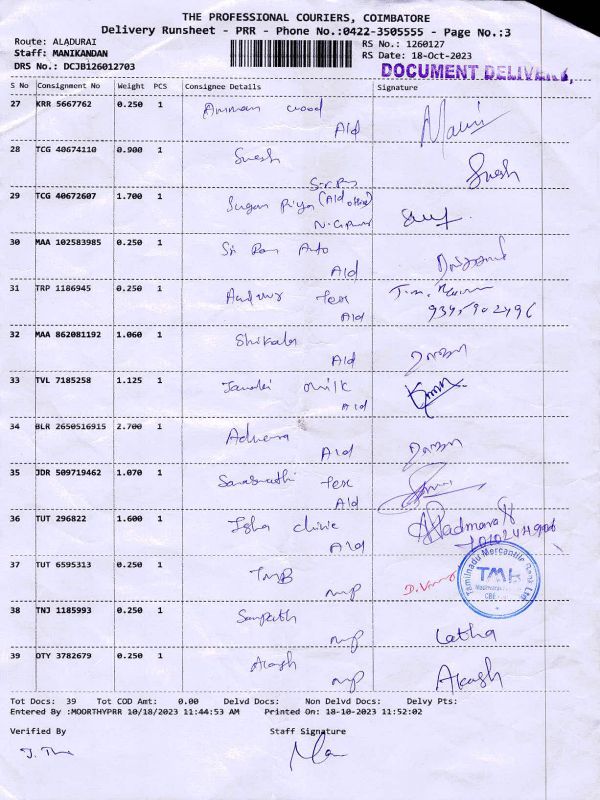 THE PROFESSIONAL COURIERS, COIMBATORE
Delivery Runsheet - PRR - Phone No.:0422-3505555 - Page No.:3
Route: ALADURAI
RS No.: 1260127
Staff: MANIKANDAN
RS Date: 18-Oct-2023
DRS No.: DCJB126012703
DOCUMENT DELIVERY,
S No Consignment No Weight PCS Consignee Details Signature
27 KRR 5667762 0.250 1 Amman wood
Ald Mani
28 TCG 40674110 0.900 1 Suresh
Suresh
29 TCG 40672607 1.700 1 Sugan Priya (Ald office)
30 MAA 102583985 0.250 1 Sri Ram Auto
Ald
31 TRP 1186945 0.250 1 Tex
Ald
32 MAA 862081192 1.060 1
Ald
33 TVL 7185258 1.125 1 milk
Ald
34 BLR 2650516915 2.700 1
Ald
35 JDR 509719462 1.070 1 Saraswathi Tex
Ald
36 TUT 296822 1.600 1 Isha clinic
Ald
37 TUT 6595313 0.250 1 TMB
mp
Tamilnadu Mercantile Bank Ltd
TMB
38 TNJ 1185993 0.250 1 Sampath
mp Latha
39 DTY 3782679 0.250 1 Akash
mp Akash
Tot Docs: 39 Tot COD Amt: 0.00 Delvd Docs: Non Delvd Docs: Delvy Pts:
Entered By :MOORTHYPRR 10/18/2023 11:44:53 AM Printed On: 18-10-2023 11:52:02
Verified By Staff Signature